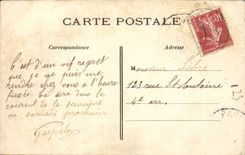 CARTE POSTALE
Correspondance
Adresse
C'est d'un vif regret
que je ne puis me
rendre chez vous à l'heure
fixée. Ce sera dans le
courant de la semaine
ou samedi prochain
Monsieur
123 rue St Antoine
4e arr.